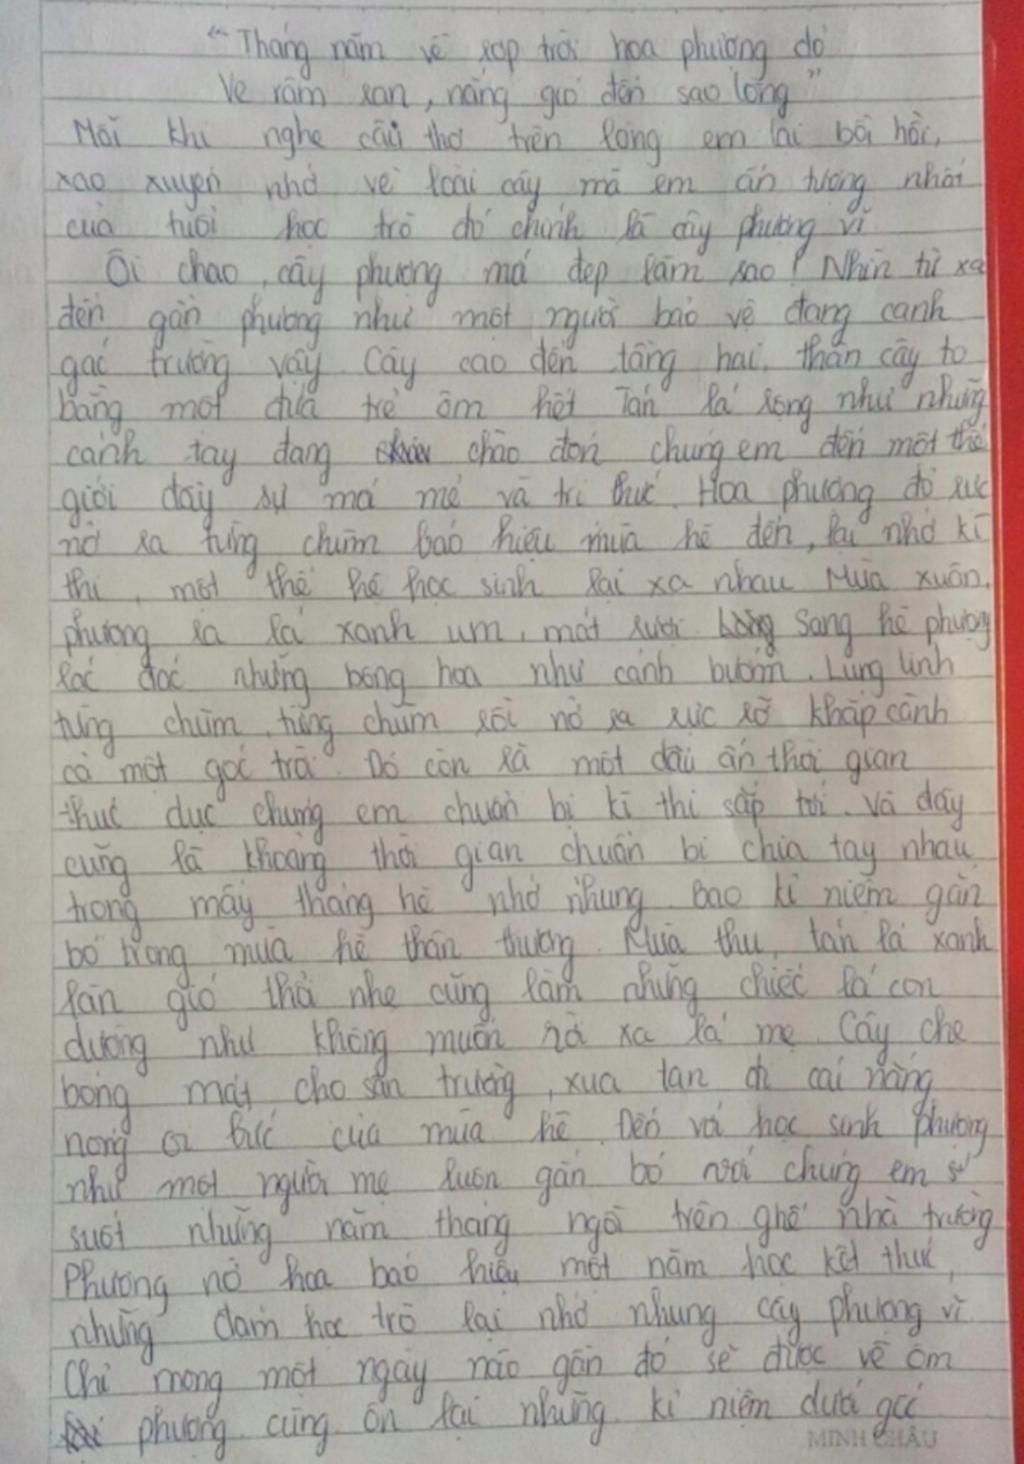 "Tháng năm về rợp trời hoa phượng đỏ
Ve râm ran, nắng gió đến sao lòng"
Mỗi khi nghe câu thơ trên lòng em lại bồi hồi,
xao xuyến nhớ về loài cây mà em ấn tượng nhất
của tuổi học trò đó chính là cây phượng vĩ
Ôi chao, cây phượng mà đẹp làm sao! Nhìn từ xa
đến gần phượng như một người bảo vệ đang canh
gác trường vậy Cây cao đến tầng hai, thân cây to
bằng một đứa trẻ ôm hết Tán lá rộng như những
cánh tay đang chào đón chúng em đến một thế
giới đầy sự mới mẻ và tri thức. Hoa phượng đỏ rực
nở ra từng chùm báo hiệu mùa hè đến, lại nhớ kì
thi, một thế hệ học sinh lại xa nhau Mùa xuân,
phượng ra lá xanh um, mát rượi Sang hè phượng
lác đác những bông hoa như cánh bướm. Lung linh
từng chùm, từng chùm rồi nở ra rực rỡ khắp cành
cả một góc trời. Đó còn là một dấu ấn thời gian
thúc dục chúng em chuẩn bị kì thi sắp tới. Và đấy
cũng là khoảng thời gian chuẩn bị chia tay nhau
trong mấy tháng hè nhớ nhung bao kỉ niệm gắn
bó trong mùa hè thân thương. Mùa thu, tán lá xanh
làn gió thổi nhẹ cũng làm những chiếc lá con
dường như không muốn rời xa lá mẹ. Cây che
bóng mát cho sân trường, xua tan đi cái nắng
nóng oi bức của mùa hè. Đến với học sinh phượng
như một người mẹ luôn gắn bó với chúng em
suốt những năm tháng ngồi trên ghế nhà trường
Phượng nở hoa báo hiệu một năm học kết thúc,
những đám học trò lại nhớ nhung cây phượng vĩ.
Chỉ mong một ngày nào gần đó sẽ được về ôm
phượng cùng ôn lại những kỉ niệm dưới gốc
MINH CHÂU